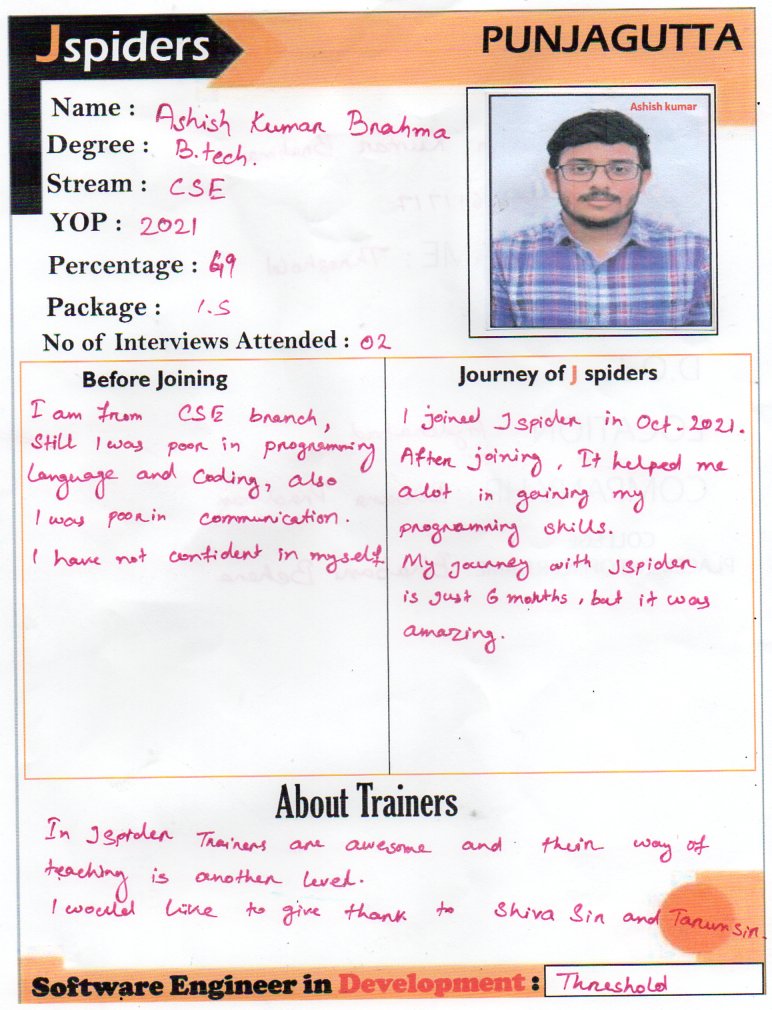 Jspiders
PUNJAGUTTA
Ashish kumar
Name : Ashish Kumar Brahma
Degree : B.tech.
Stream : CSE
YOP : 2021
Percentage : 69
Package : 1.5
No of Interviews Attended : 02
Before Joining
I am from CSE branch,
Still I was poor in programming
language and Coding, also
I was poor in communication.
I have not confident in myself.
Journey of J spiders
I joined Jspider in Oct-2021.
After joining, It helped me
alot in gaining my
programming skills.
My journey with Jspider
is just 6 months, but it was
amazing.
About Trainers
In Jspider Trainers are awesome and their way of
teaching is another level.
I would like to give thank to Shiva Sir and Tarun Sir.
Software Engineer in Development : Threshold